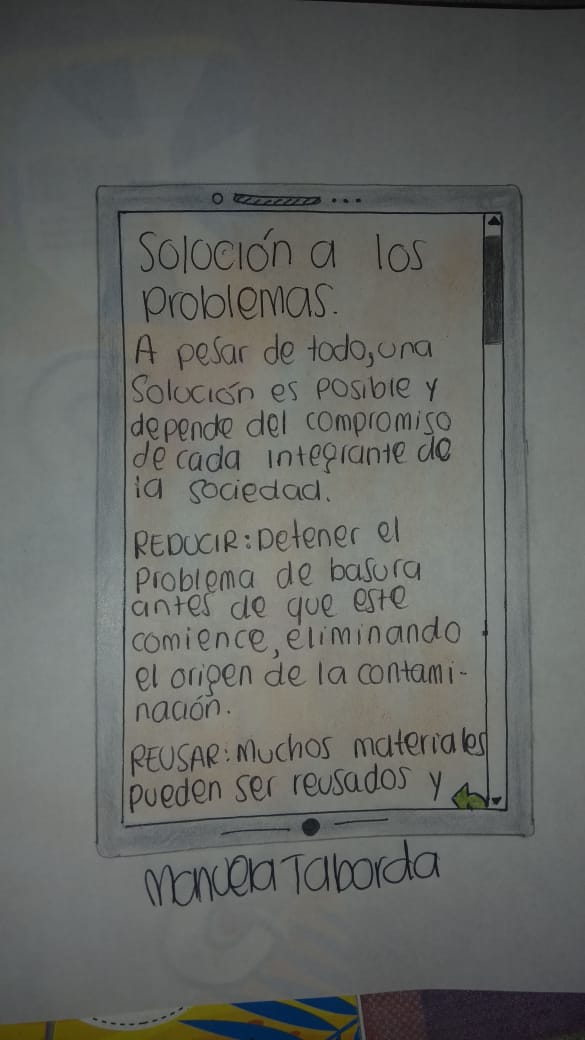 Solución a los
problemas.
A pesar de todo, una
Solución es posible y
depende del compromiso
de cada integrante de
la sociedad.
REDUCIR: Detener el
problema de basura
antes de que este
comience, eliminando
el origen de la contami-
nación.
REUSAR: Muchos materiales
pueden ser reusados y
Manuela Taborda